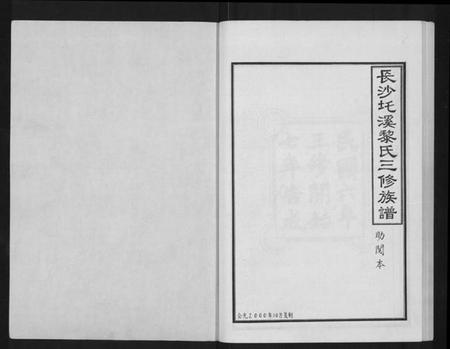 長沙圫溪黎氏三修族譜
助閱本
民國六年
三修開始
七年告成
公元2000年10月复制